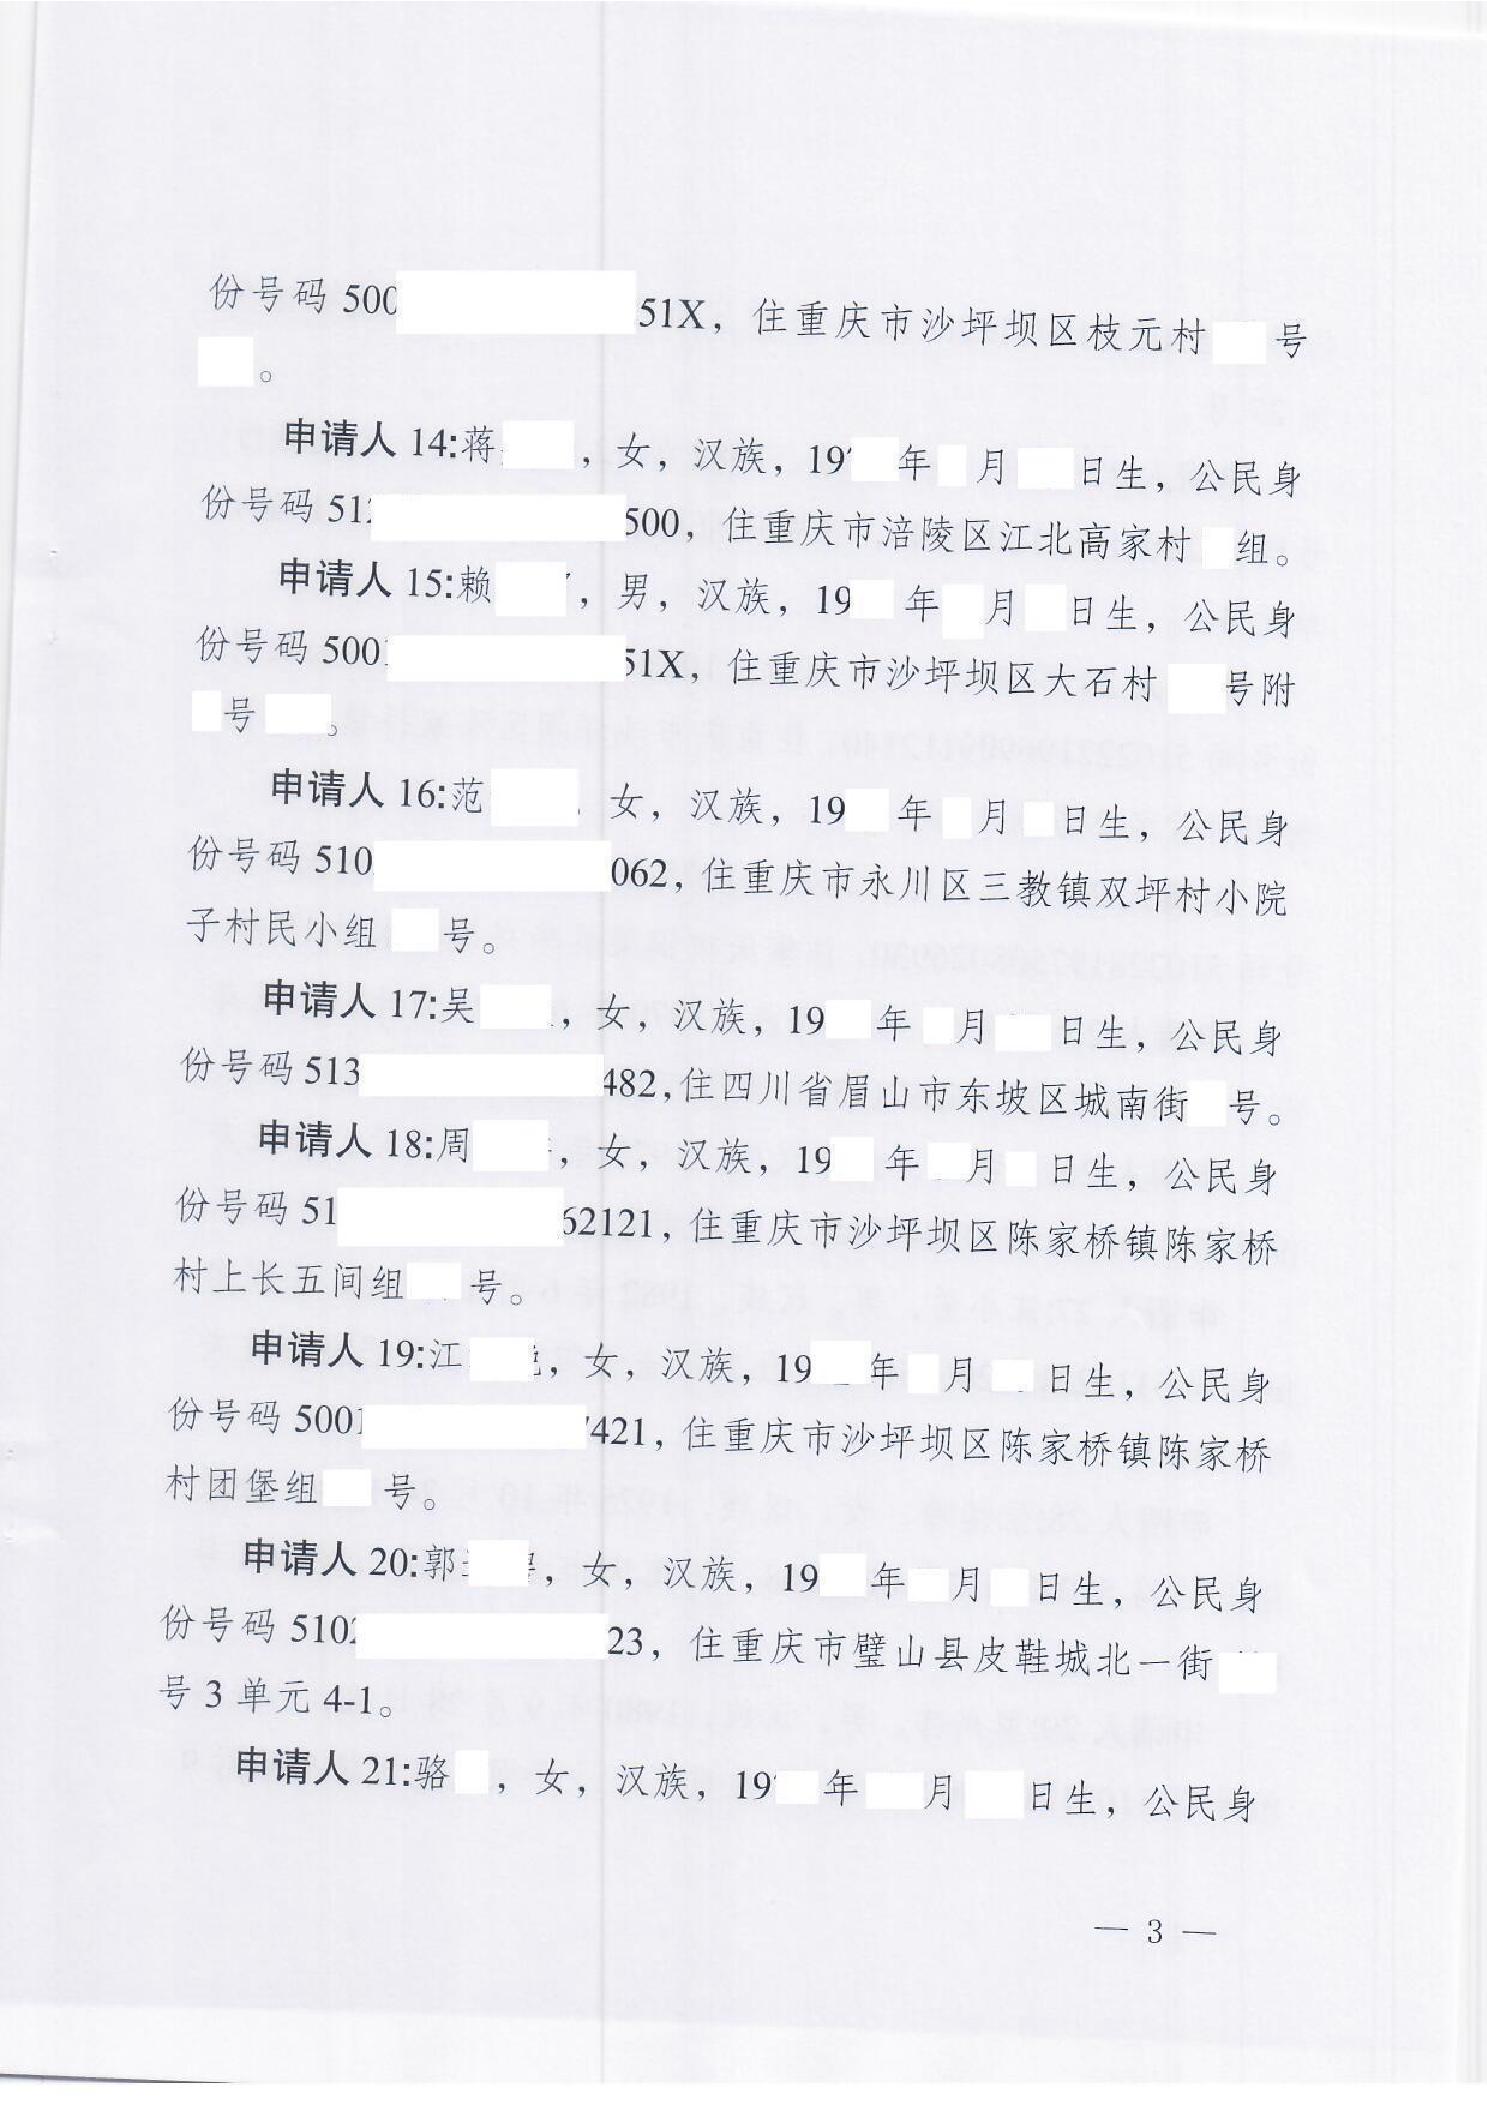 份号码 500 51X，住重庆市沙坪坝区枝元村 号
。
申请人 14:蒋 ，女，汉族，19 年 月 日生，公民身
份号码 51 500，住重庆市涪陵区江北高家村 组。
申请人 15:赖 ，男，汉族，19 年 月 日生，公民身
份号码 5001 51X，住重庆市沙坪坝区大石村 号附
号 。
申请人 16:范 ，女，汉族，19 年 月 日生，公民身
份号码 510 062，住重庆市永川区三教镇双坪村小院
子村民小组 号。
申请人 17:吴 ，女，汉族，19 年 月 日生，公民身
份号码 513 482，住四川省眉山市东坡区城南街 号。
申请人 18:周 ，女，汉族，19 年 月 日生，公民身
份号码 51 62121，住重庆市沙坪坝区陈家桥镇陈家桥
村上长五间组 号。
申请人 19:江 ，女，汉族，19 年 月 日生，公民身
份号码 5001 421，住重庆市沙坪坝区陈家桥镇陈家桥
村团堡组 号。
申请人 20:郭 ，女，汉族，19 年 月 日生，公民身
份号码 5102 23，住重庆市璧山县皮鞋城北一街
号 3 单元 4-1。
申请人 21:骆 ，女，汉族，19 年 月 日生，公民身
— 3 —